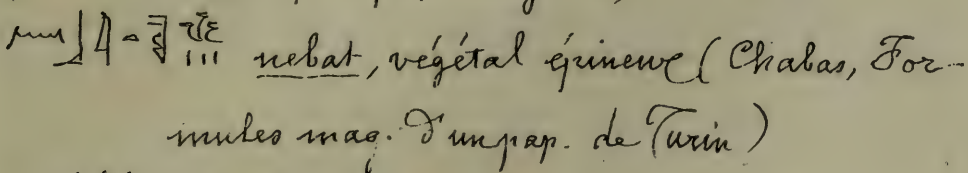 nebat, végétal épineux (Chabas, For-
mules mag. d'un pap. de Turin)